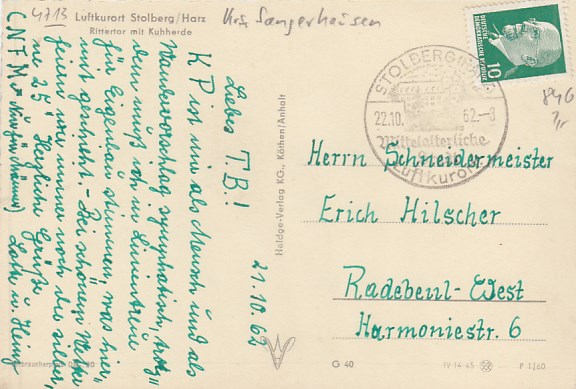 4713
Luftkurort Stolberg/Harz
Rittertor mit Kuhherde
Krs. Sangerhausen
DEUTSCHE
DEMOKRATISCHE REPUBLIK
10
STOLBERG (HARZ)
22.10.62-8
Mittelalterliche
Luftkurort
Herrn Schneidermeister
Erich Hilscher
Radebeul-West
Harmoniestr. 6
21.10.62
Liebes T.B.!
KP ist in als Mensch und als
Wandervorschlag sympathisch, trotz
dem muß ich in Linientreue
für Eigenbau stimmen, was hier
mit geschieht. - Bei schönem Wetter
feiern wir immer noch die silber
ne 25 Herzliche Grüße
Lotte u. Heinz
CNFM
Heldge-Verlag KG., Köthen/Anhalt
G 40
IV-14-45
P 1/60